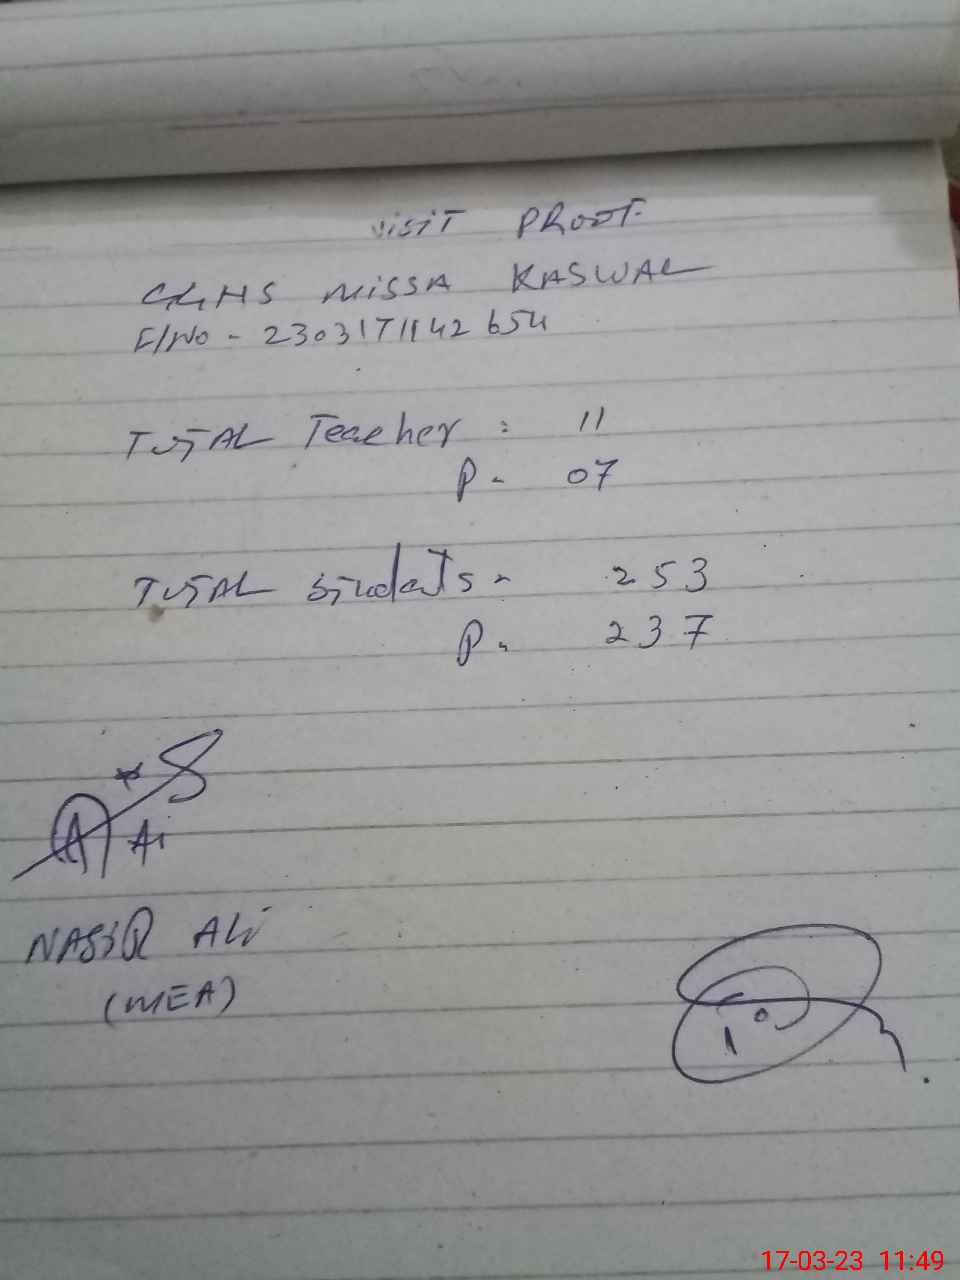 VISIT PROOF.
GGHS MISSA KASWAL
F/NO - 2303171142654
TOTAL Teacher : 11
P - 07
TOTAL Students - 253
P - 237
NASIR ALI
(MEA)
17-03-23 11:49